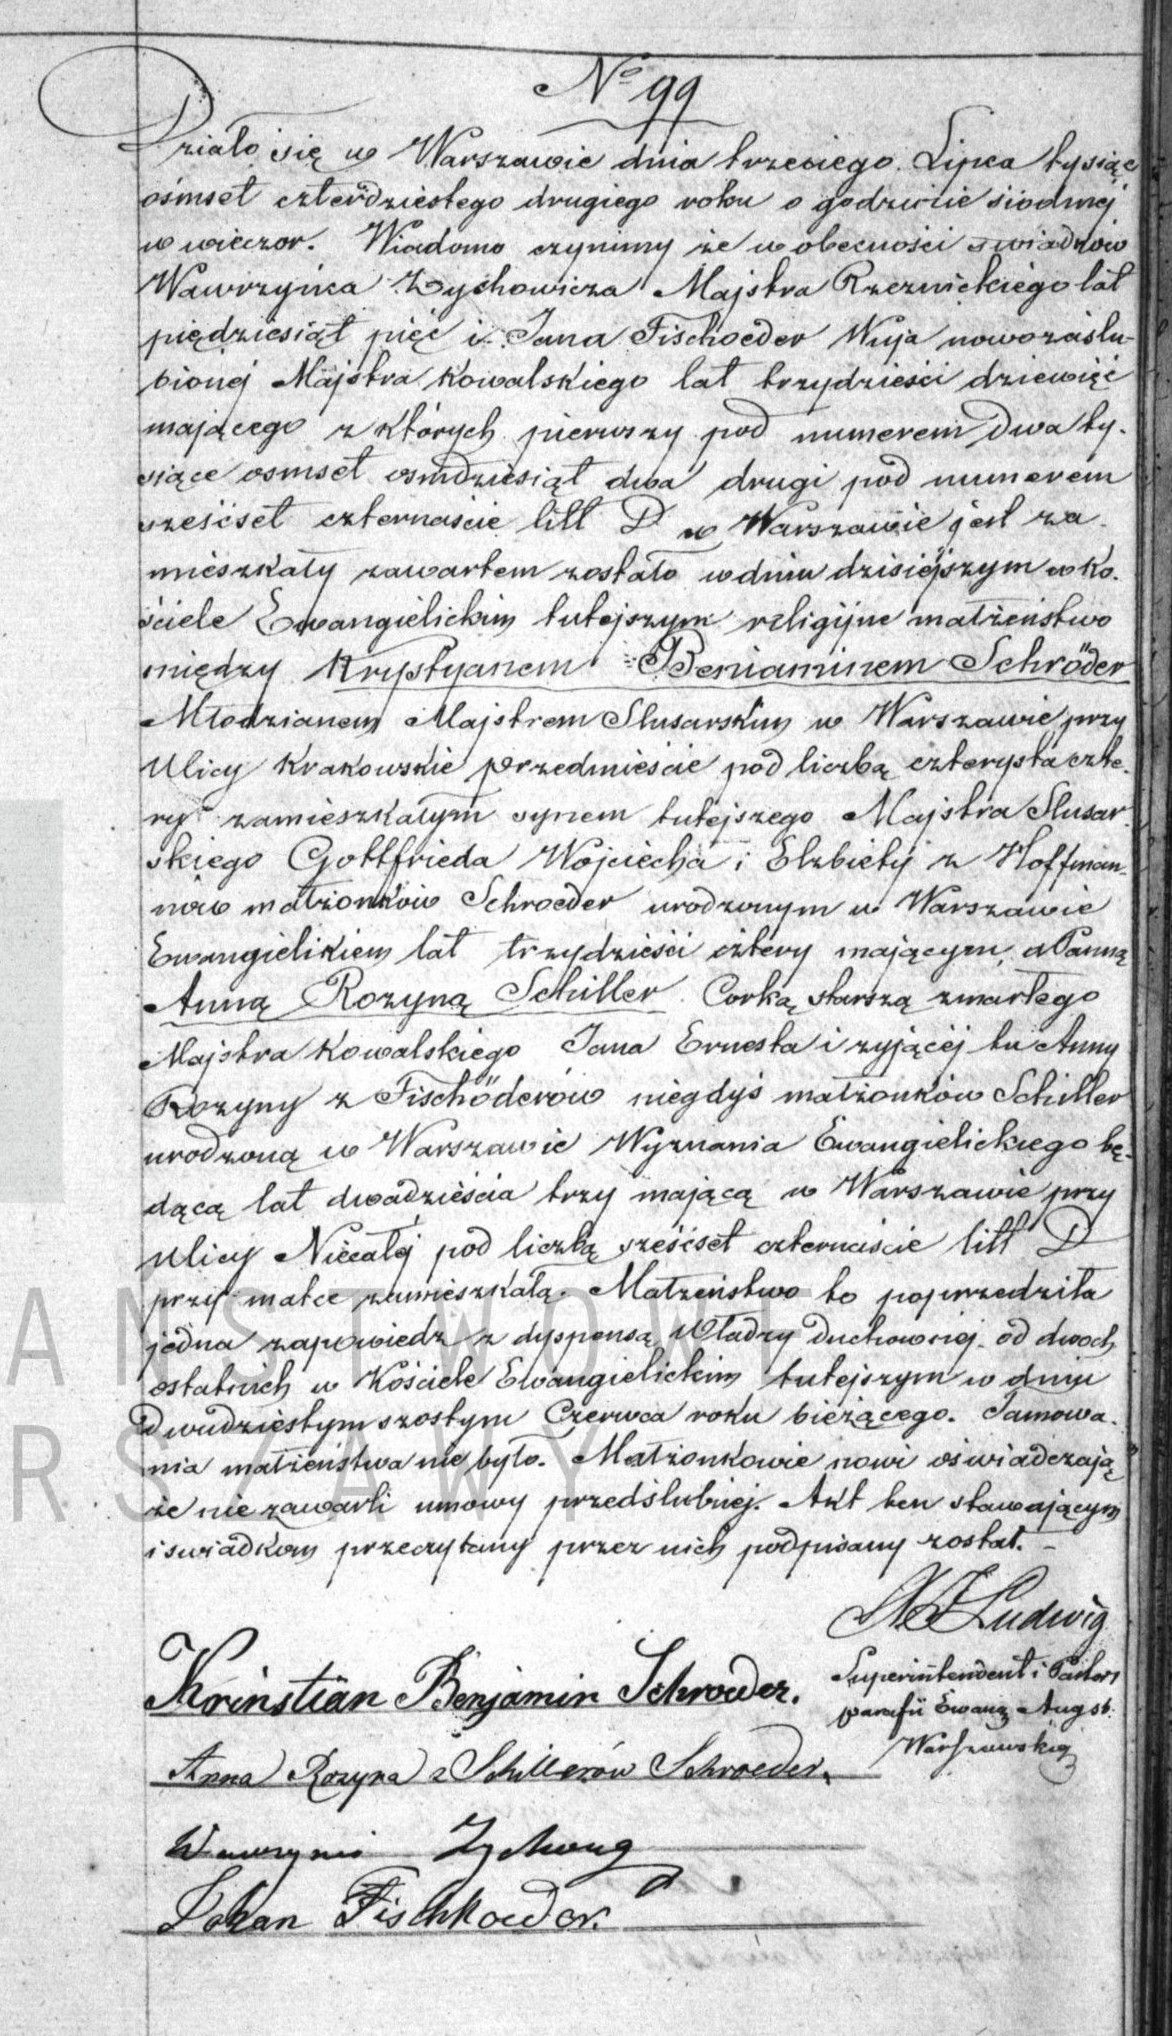 No 99
Działo się w Warszawie dnia trzeciego Lipca tysiąc
ośmset czterdziestego drugiego roku o godzinie siódmej
w wieczor. Wiadomo czynimy że w obecności swiadków
Wawrzyńca Zychowicza Majstra Rzeznickiego lat
piędziesiąt pięć i Jana Fischoeder Wuja nowozaślu-
bionej Majstra Kowalskiego lat trzydzieści dziewięć
mającego z których pierwszy pod numerem Dwa ty-
siące osmset osmdziesiąt dwa drugi pod numerem
sześćset czternaście litt D w Warszawie jest za-
mieszkały zawartem zostało w dniu dzisiejszym w Ko-
ściele Ewangielickim tutejszym religijne małżeństwo
między Krystyanem Beniaminem Schröder
Młodzianem Majstrem Slusarskim w Warszawie przy
Ulicy Krakowskie przedmieście pod liczbą czterysta czte-
ry zamieszkałym synem tutejszego Majstra Slusar-
skiego Gottfrieda Wojciecha i Elzbiety z Hoffman-
nów małżonków Schroeder urodzonym w Warszawie
Ewangielikiem lat trzydzieści cztery mającym, a Panną
Anną Rozyną Schiller Corką starszą zmarłego
Majstra Kowalskiego Jana Ernesta i zyjącej tu Anny
Rozyny z Fischöderów niegdyś małżonków Schiller
urodzoną w Warszawie Wyznania Ewangielickiego bę-
dącą lat dwadzieścia trzy mającą w Warszawie przy
Ulicy Niecałej pod liczbą sześćset czternaście litt D
przy matce zamieszkałą. Małżeństwo to poprzedziła
jedna zapowiedz z dyspensą Władzy Duchownej od dwóch
ostatnich w Kościele Ewangielickim tutejszym w dniu
Dwudziestym szostym Czerwca roku bieżącego. Tamowa-
nia małżeństwa nie było. Małżonkowie nowi oświadczają
że nie zawarli umowy przedślubnej. Akt ten stawającym
i swiadkom przeczytany przez nich podpisany został.
Ludwig
Superintendent i Pastor
parafii Ewang Augsb.
Warszawskiej
Krinstian Benjamin Schroeder.
Anna Rozyna z Schillerów Schroeder.
Wawrzynic
Johan Fischhoeder.
ANSTWOWE
RSZAWY